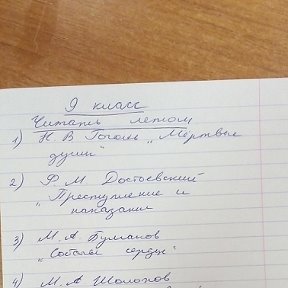 9 класс
Читать летом
1) Н. В Гоголь „Мертвые
души"
2) Ф. М. Достоевский
„Преступление и
наказание
3) М. А Булгаков
„Собачье сердце"
4) М. А. Шолохов